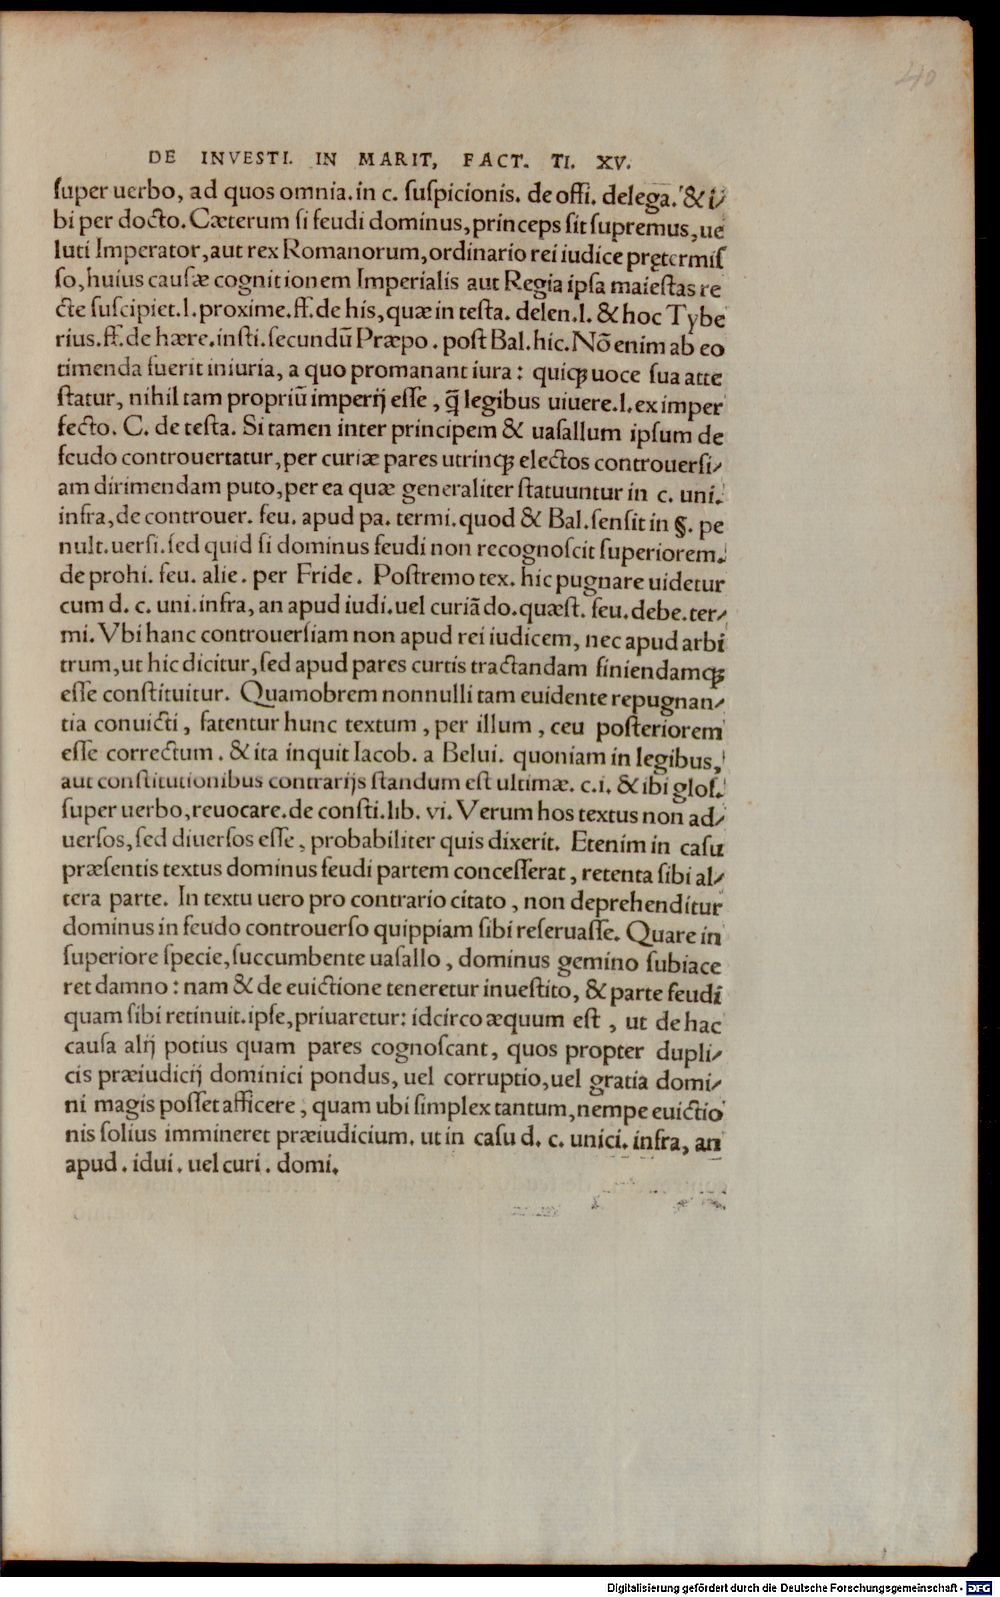 40
DE INVESTI. IN MARIT, FACT. TI. XV.
ſuper uerbo, ad quos omnia. in c. ſuſpicionis. de offi. delega. & i⸗
bi per docto. Cæterum ſi feudi dominus, princeps ſit ſupremus, ue
luti Imperator, aut rex Romanorum, ordinario rei iudice prętermiſ
ſo, huius cauſæ cognitionem Imperialis aut Regia ipſa maieſtas re
cte ſuſcipiet. l. proxime. ff. de his, quæ in teſta. delen. l. & hoc Tybe
rius. ff. de hære. inſti. ſecundū Præpo. poſt Bal. hic. Nō enim ab eo
timenda fuerit iniuria, a quo promanant iura: quiqꝫ uoce ſua atte
ſtatur, nihil tam propriū imperij eſſe, q̃ legibus uiuere. l. ex imper
fecto. C. de teſta. Si tamen inter principem & uaſallum ipſum de
feudo controuertatur, per curiæ pares utrinqꝫ electos controuerſi⸗
am dirimendam puto, per ea quæ generaliter ſtatuuntur in c. uni.
infra, de controuer. feu. apud pa. termi. quod & Bal. ſenſit in §. pe
nult. uerſi. ſed quid ſi dominus feudi non recognoſcit ſuperiorem.
de prohi. feu. alie. per Fride. Poſtremo tex. hic pugnare uidetur
cum d. c. uni. infra, an apud iudi. uel curiā do. quæſt. feu. debe. ter⸗
mi. Vbi hanc controuerſiam non apud rei iudicem, nec apud arbi
trum, ut hic dicitur, ſed apud pares curtis tractandam finiendamqꝫ
eſſe conſtituitur. Quamobrem nonnulli tam euidente repugnan⸗
tia conuicti, fatentur hunc textum, per illum, ceu poſteriorem
eſſe correctum. & ita inquit Iacob. a Belui. quoniam in legibus,
aut conſtitutionibus contrarijs ſtandum eſt ultimæ. c. i. & ibi gloſ.
ſuper uerbo, reuocare. de conſti. lib. vi. Verum hos textus non ad⸗
uerſos, ſed diuerſos eſſe, probabiliter quis dixerit. Etenim in caſu
præſentis textus dominus feudi partem conceſſerat, retenta ſibi al⸗
tera parte. In textu uero pro contrario citato, non deprehenditur
dominus in feudo controuerſo quippiam ſibi reſeruaſſe. Quare in
ſuperiore ſpecie, ſuccumbente uaſallo, dominus gemino ſubiace
ret damno: nam & de euictione teneretur inueſtito, & parte feudi
quam ſibi retinuit. ipſe, priuaretur: idcirco æquum eſt, ut de hac
cauſa alij potius quam pares cognoſcant, quos propter dupli⸗
cis præiudicij dominici pondus, uel corruptio, uel gratia domi⸗
ni magis poſſet afficere, quam ubi ſimplex tantum, nempe euictio
nis ſolius immineret præiudicium. ut in caſu d. c. unici. infra, an
apud. idui. uel curi. domi.
Digitalisierung gefördert durch die Deutsche Forschungsgemeinschaft - DFG